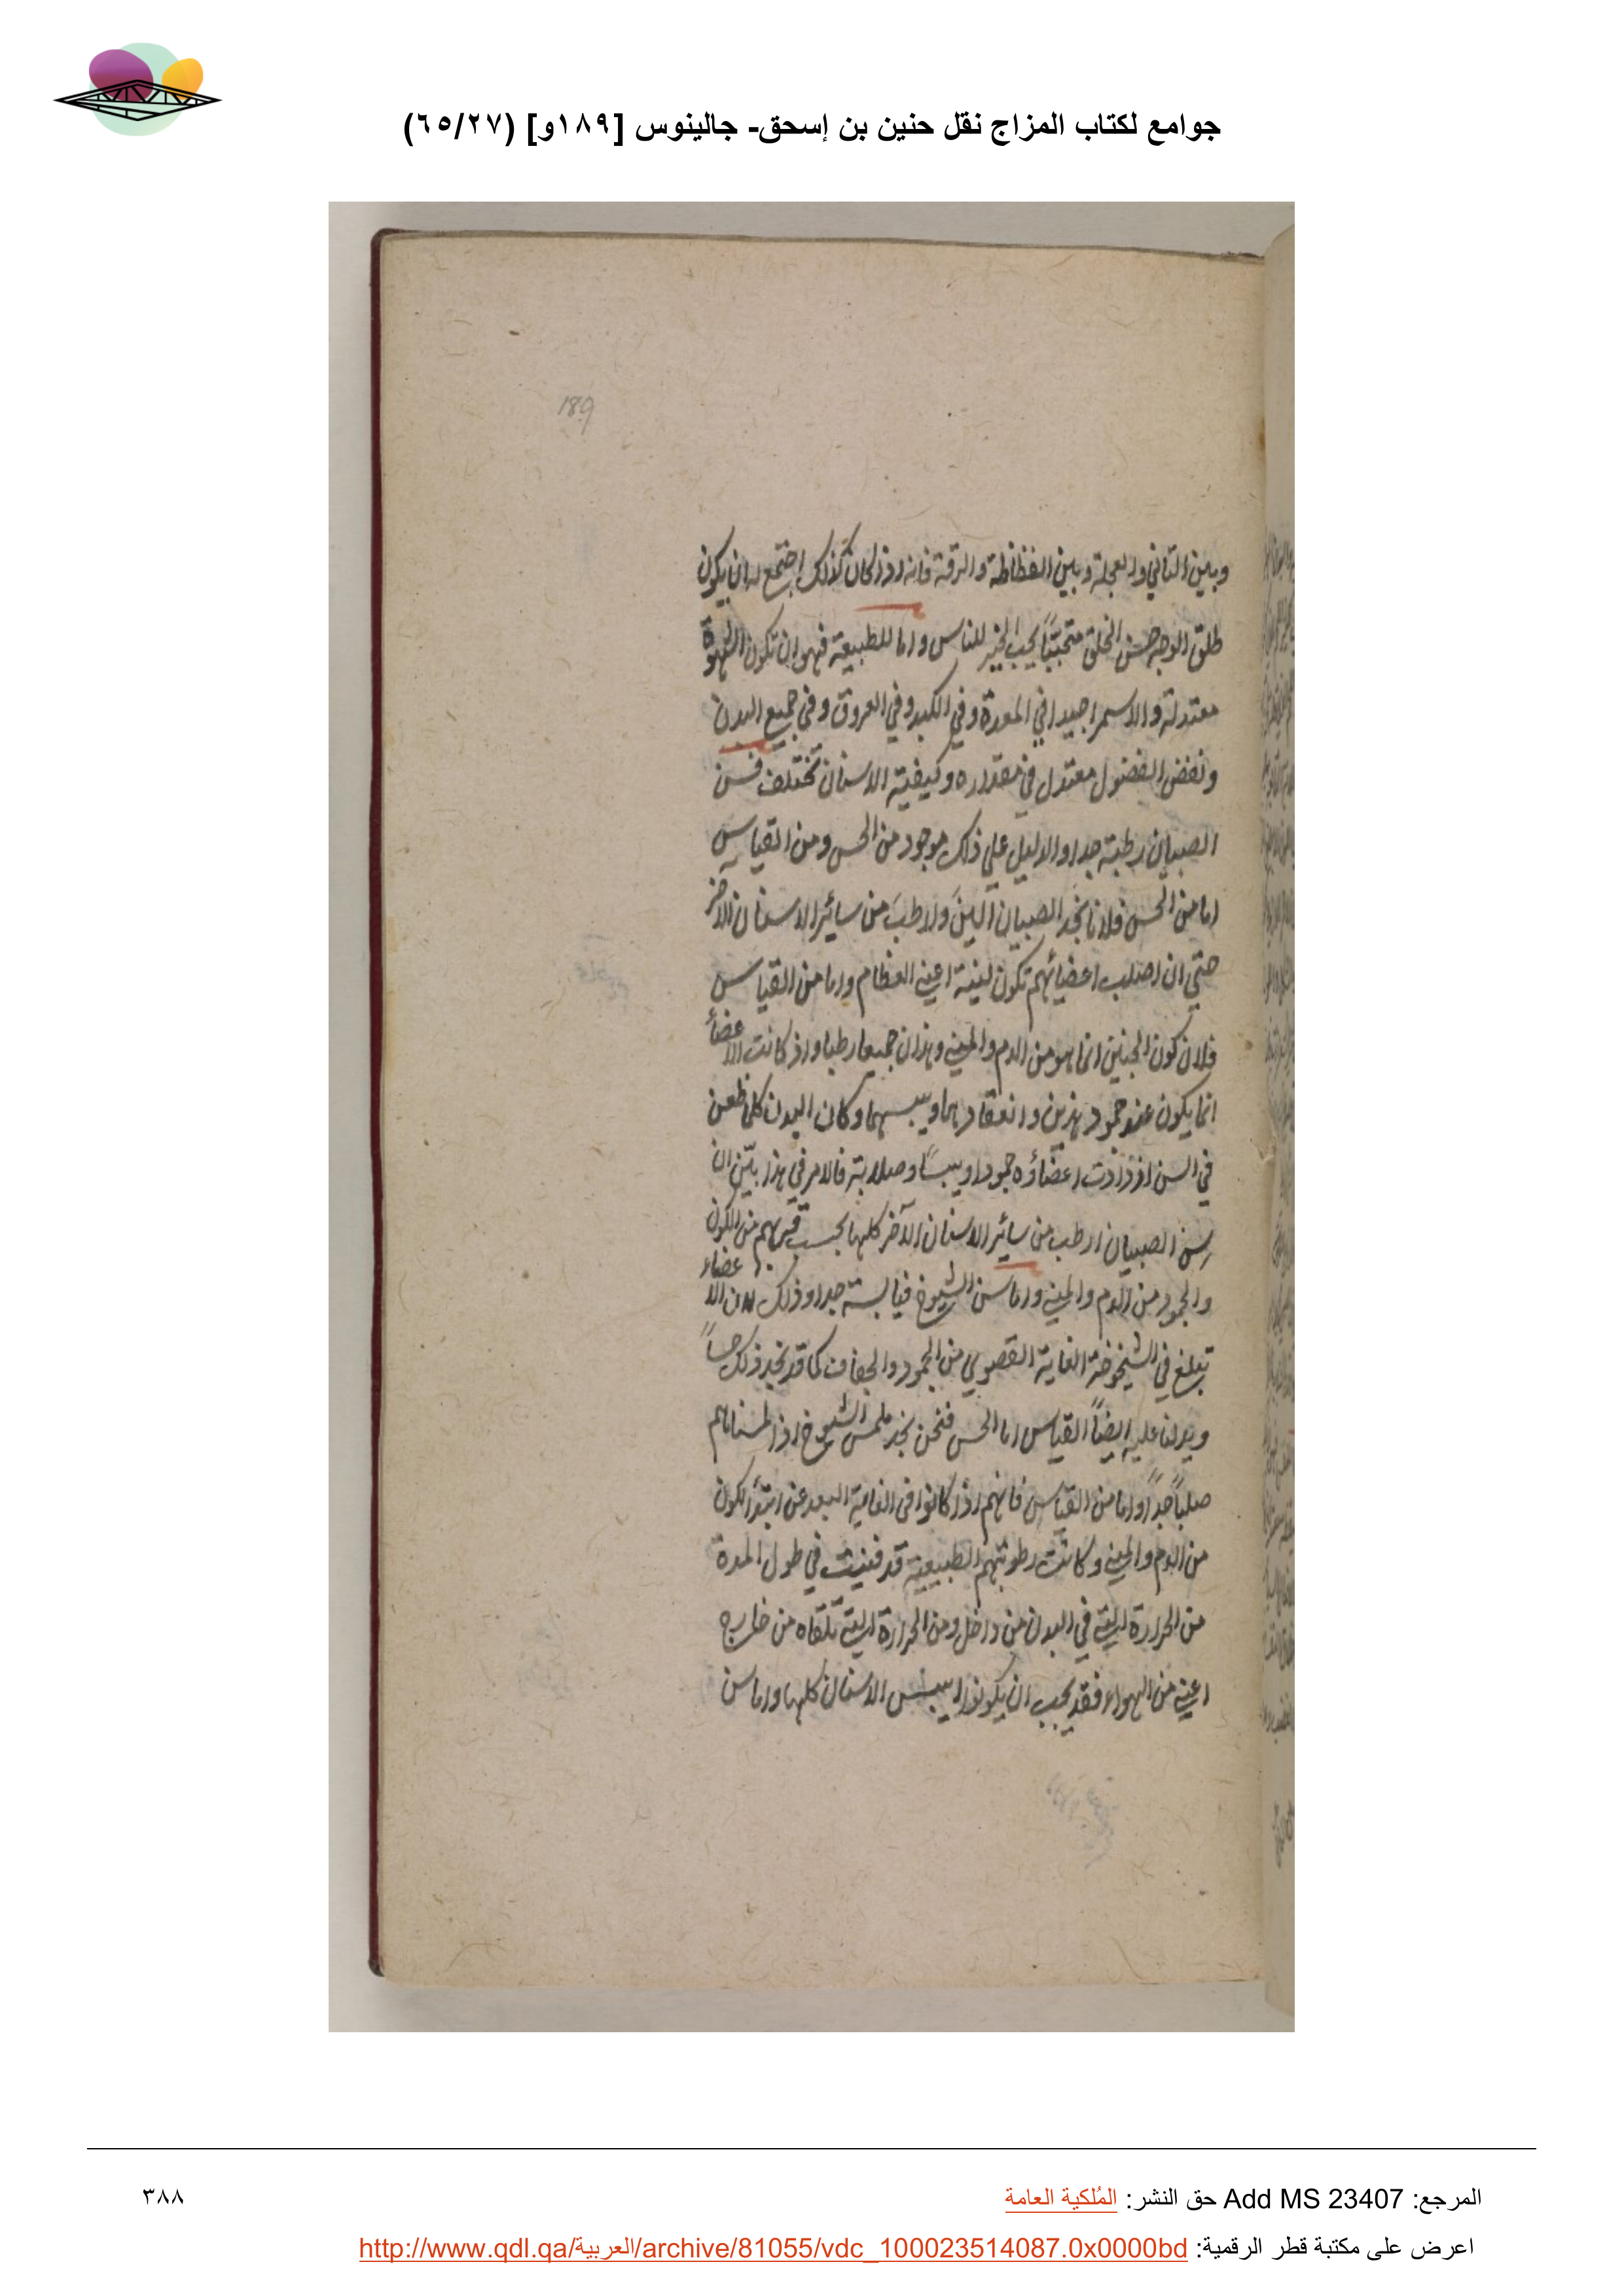 جوامع لكتاب المزاج نقل حنين بن إسحق- جالينوس [١٨٩و] (٦٥/٢٧)
189
وبين التاني والعجلة وبين الفظاظة والرقة فانه اذا كان كذلك اجتمع له ان يكون
طلق الوجه حسن الخلق متحببًا يحب الخير للناس واما للطبيعة فهو ان تكون الشهوة
معتدلة والاستمرا جيدا في المعدة وفي الكبد وفي العروق وفي جميع البدن
ونفض الفضول معتدل في مقداره وكيفيته الاسنان تختلف فسن
الصبيان رطبة جدا والدليل علي ذلك موجود من الحس ومن القياس
اما من الحس فلانا نجد الصبيان الينَ وارطبَ من سائر الاسنان الاخر
حتي ان اصلب اعضائهم تكون لينة اعني العظام واما من القياس
فلان كون الجنين انما هو من الدم والمني وهذان جميعا رطبا واذ كانت الاعضأ
انما يكون عند جمود هذين وانعقادهما ويبسهما وكان البدن كلما ظعن
في السن ازدادت اعضاؤه جمودا ويبسًا وصلابة فالامر في هذا بيّن ان
سن الصبيان ارطب من سائر الاسنان الآخر كلها بحسب قربهم من الكون
والجمود من الدم والمني واما سن الشيوخ فيابسة جدا وذلك لان الاعضاء
تبلغ في الشيخوخة الغاية القصوي من الجمود والجفاف كما قد نجد ذلك حسًا
ويدلنا عليه ايضًا القياس اما الحس فنحن نجد ملمس الشيوخ اذا لمسناهم
صلبًا جدًا واما من القياس فانهم اذا كانوا في الغاية البعد عن ابتدأ الكون
من الدم والمني وكانت رطوبتهم الطبيعية قد فنيت في طول المدة
من الحرارة التي في البدن من داخل ومن الحرارة التي تلقاه من خارج
اعني من الهواء فقد يجب ان يكونوا ايبس الاسنان كلها واما سن
المرجع: Add MS 23407 حق النشر: المُلكية العامة
٣٨٨
اعرض على مكتبة قطر الرقمية: http://www.qdl.qa/العربية/archive/81055/vdc_100023514087.0x0000bd